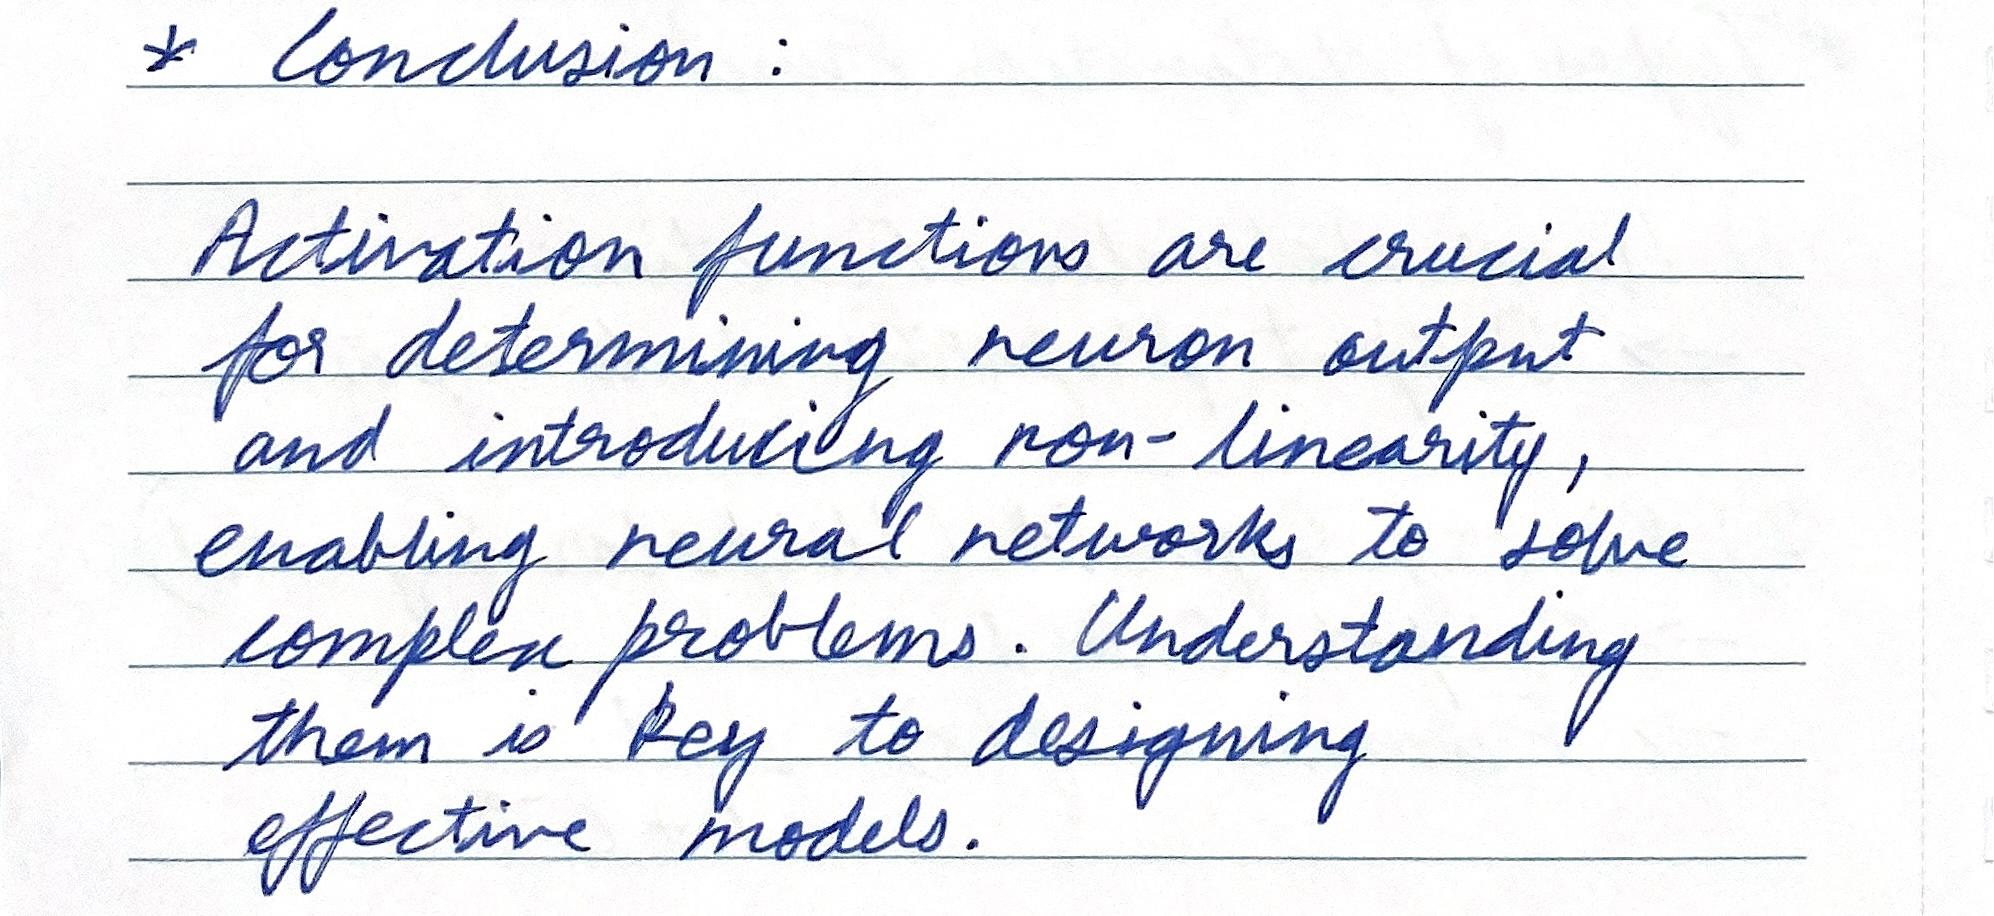 * Conclusion :
Activation functions are crucial
for determining neuron output
and introducing non-linearity,
enabling neural networks to solve
complex problems. Understanding
them is key to designing
effective models.